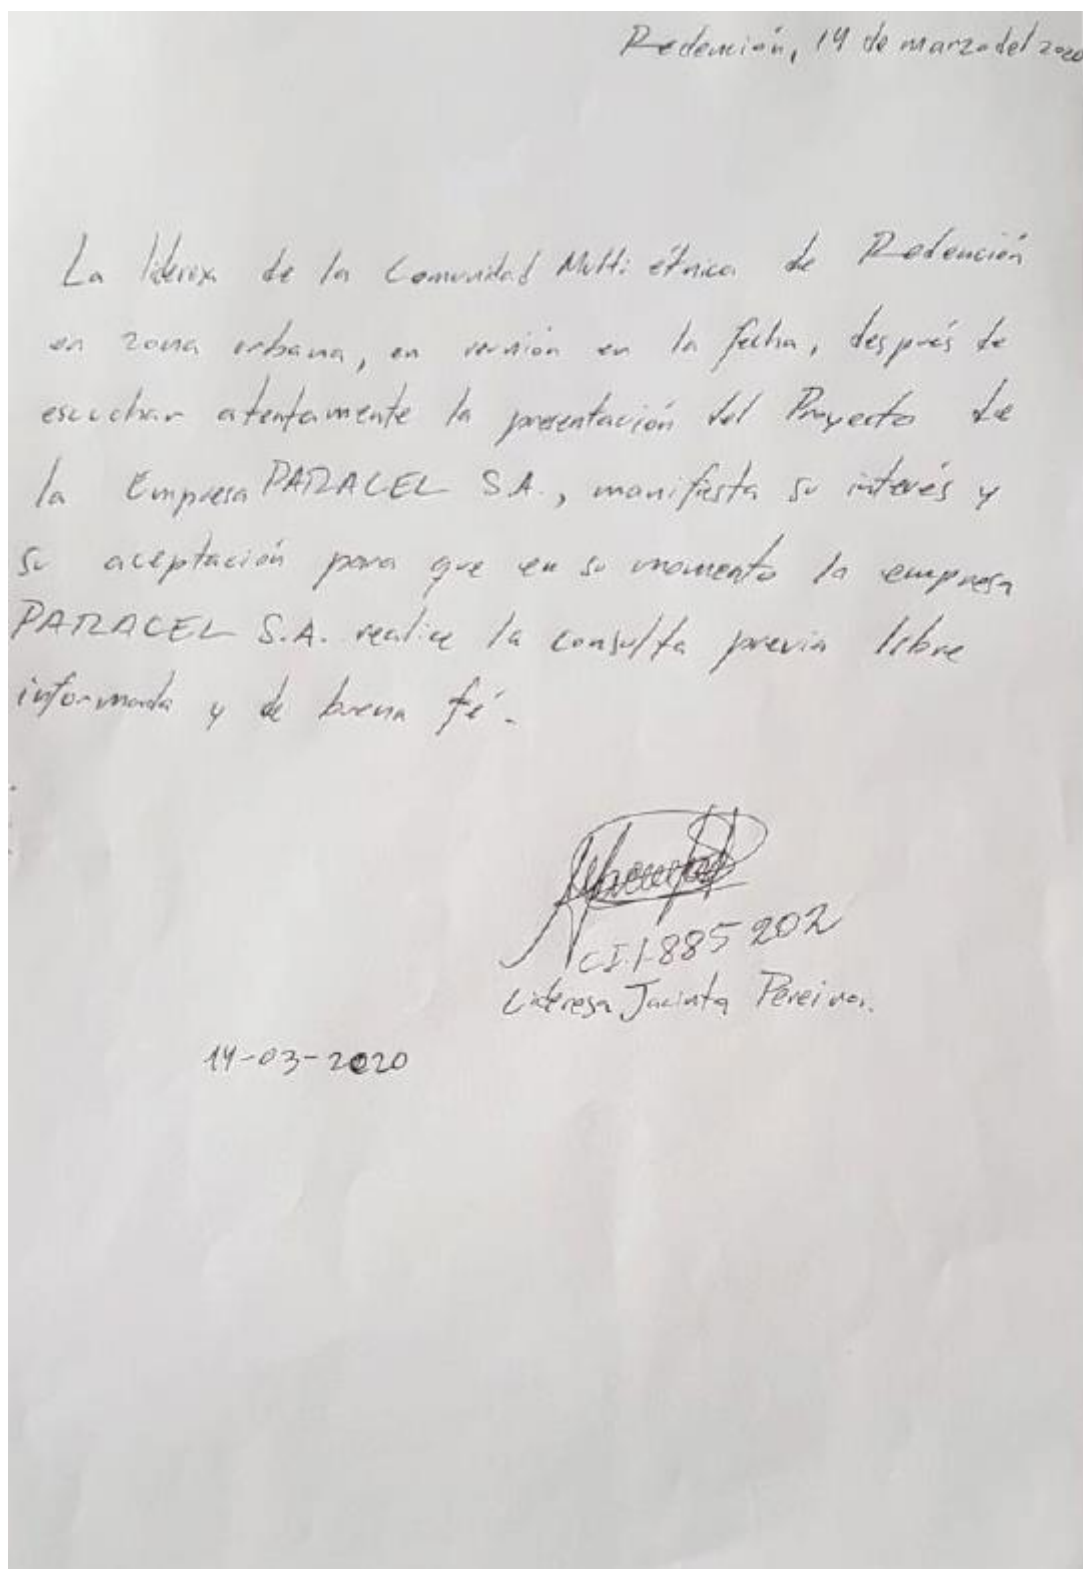 Redención, 14 de marzo del 2020
La lideresa de la Comunidad Multi étnica de Redención
en zona urbana, en reunión en la fecha, después de
escuchar atentamente la presentación del Proyecto de
la Empresa PARACEL S.A., manifiesta su interés y
su aceptación para que en su momento la empresa
PARACEL S.A. realice la consulta previa libre
informada y de buena fé.
C.I. 1.885 202
Lideresa Jacinta Pereira.
14-03-2020